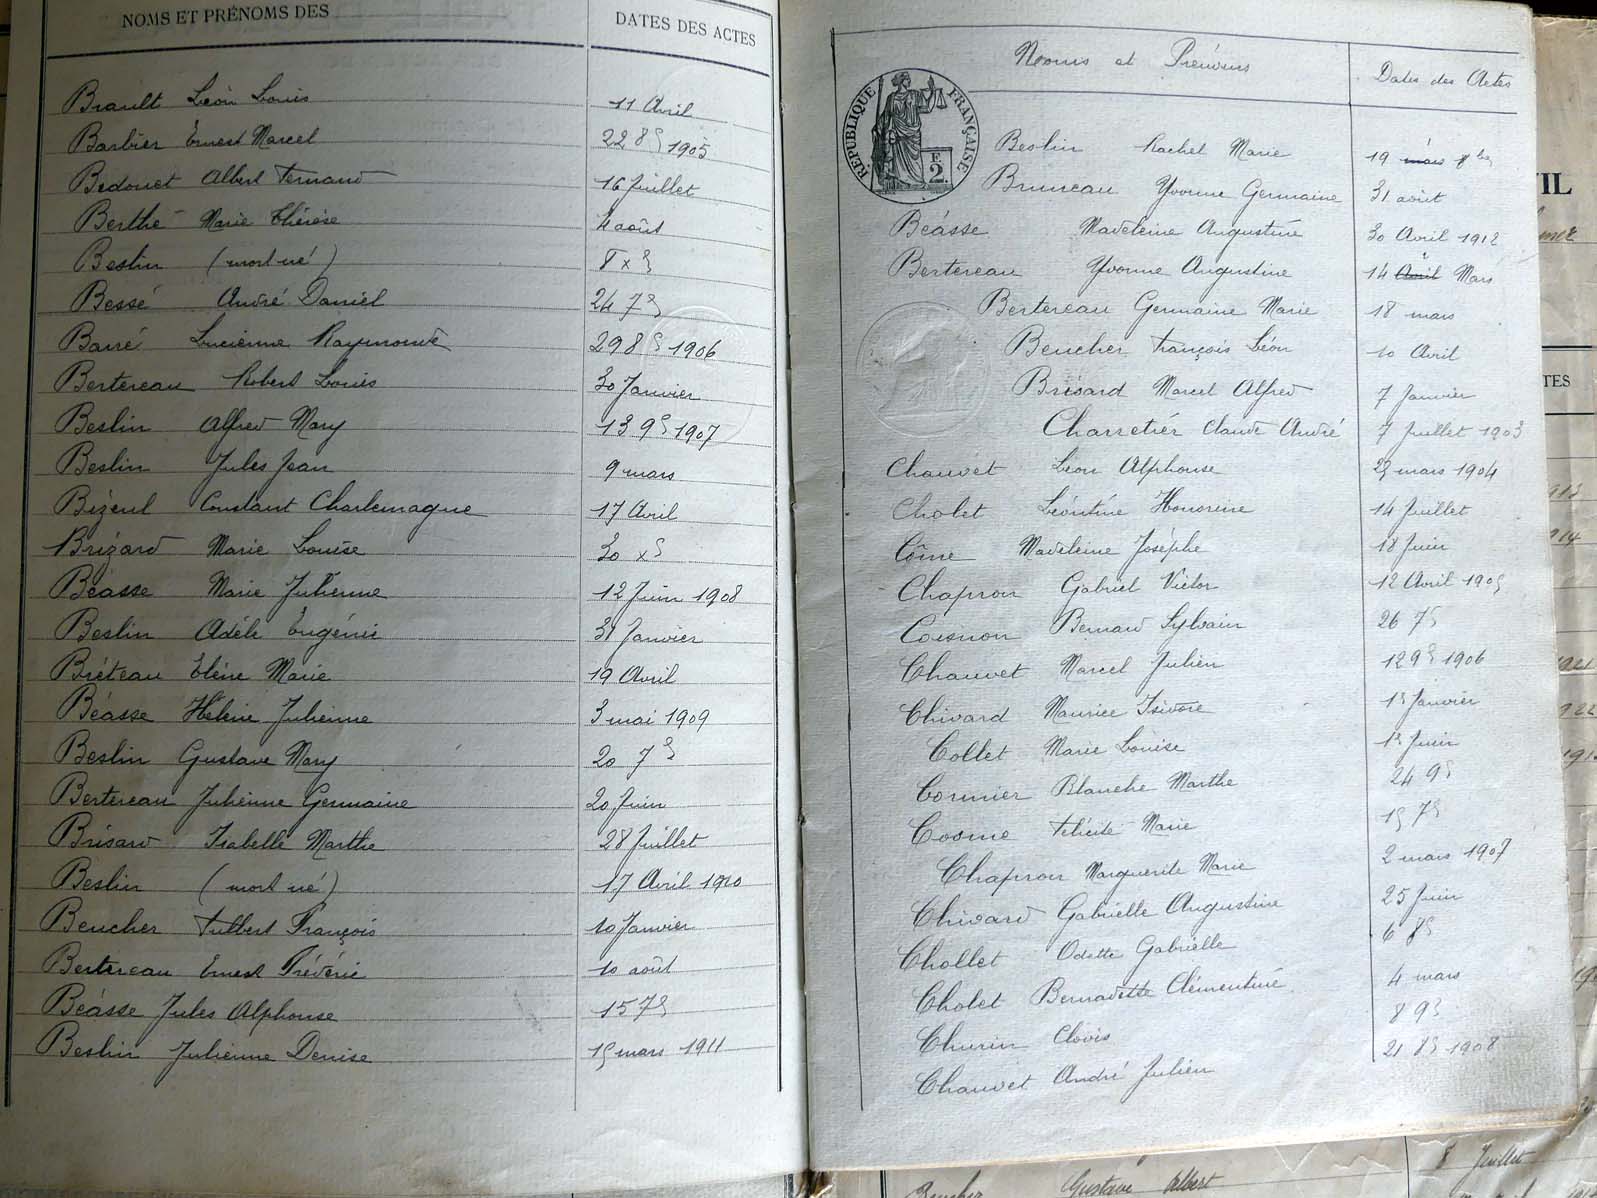 NOMS ET PRÉNOMS DES DATES DES ACTES
Brault Léon Louis 11 Avril
Barbier Ernest Marcel 22 8 1905
Bedouet Albert Fernand 16 Juillet
Berthé Marie Thérèse 4 août
Beslin (mort né) 8 x
Bessé André Daniel 24 7
Barré Lucienne Raymonde 29 8 1906
Bertereau Robert Louis 30 Janvier
Beslin Alfred Mary 13 9 1907
Beslin Jules Jean 9 mars
Bizeul Constant Charlemagne 17 Avril
Brizard Marie Louise 30 x
Béasse Marie Julienne 12 Juin 1908
Beslin Adèle Eugénie 31 Janvier
Bréteau Marie 19 Avril
Béasse Hélène Julienne 3 mai 1909
Beslin Gustave Mary 20 7
Bertereau Julienne Germaine 20 Juin
Brisard Isabelle Marthe 28 Juillet
Beslin (mort né) 17 Avril 1910
Beucher Fulbert François 10 Janvier
Bertereau Ernest Frédéric 10 août
Béasse Jules Alphonse 15 7
Beslin Julienne Denise 15 mars 1911
Noms et Prénoms Dates des Actes
RÉPUBLIQUE FRANÇAISE
E.
2.
Beslin Rachel Marie 19 mars
Bruneau Yvonne Germaine 31 août
Béasse Madeleine Augustine 30 Avril 1912
Bertereau Yvonne Augustine 14 Avril Mars
Bertereau Germaine Marie 18 mars
Beucher François Léon 10 Avril
Brisard Marcel Alfred 7 Janvier
Charretiér Claude André 7 Juillet 1903
Chauvet Léon Alphonse 23 mars 1904
Cholet Léontine Honorine 14 Juillet
Côme Madeleine Josèphe 18 Juin
Chapron Gabriel Victor 12 Avril 1905
Coesnon Bernard Sylvain 26 7
Chauvet Marcel Julien 12 9 1906
Chivard Maurice Isidore 15 Janvier
Collet Marie Louise Juin
Cormier Blanche Marthe 24 9
Cosme Félicité Marie 15 7
Chapron Marguerite Marie 2 mars 1907
Chivard Gabrielle Augustine 25 Juin
Chollet Odette Gabrielle 6 8
Cholet Bernadette Clémentine 4 mars
Churin Clovis 8 9
Chauvet André Julien 21 8 1908
VIL
TES
8 Juillet
Beucher Gustave Albert